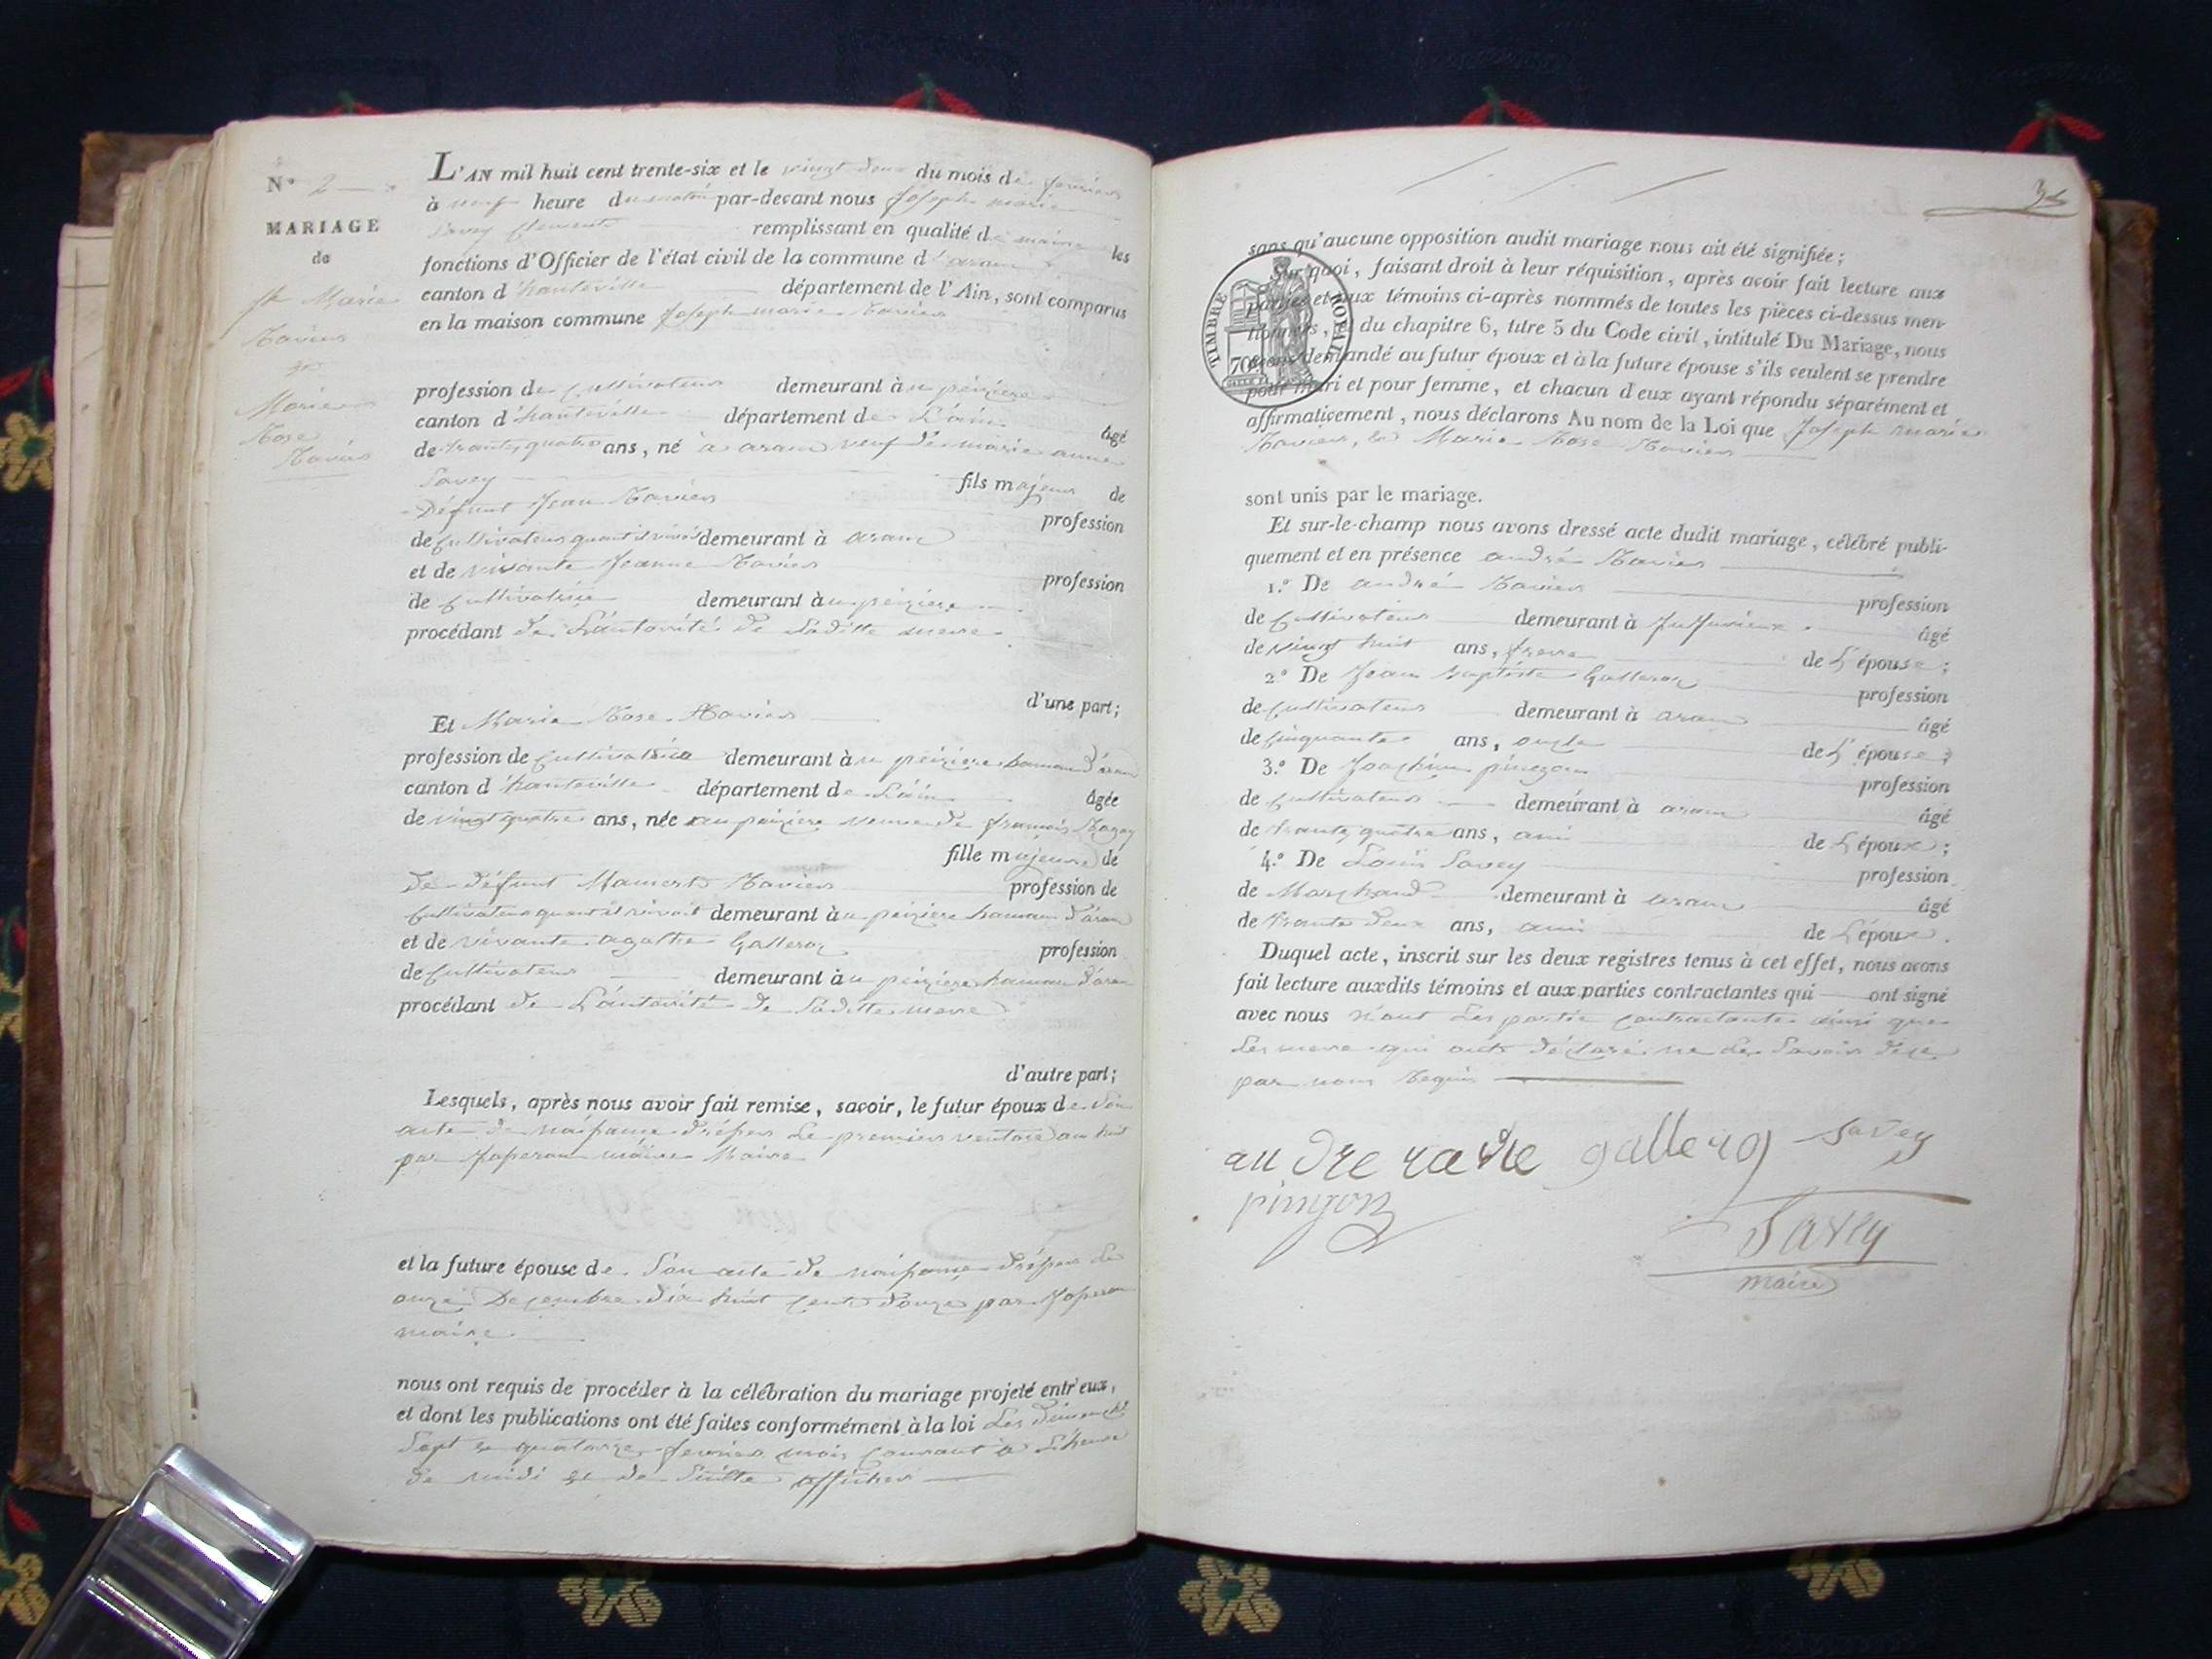 N° 2
MARIAGE
de
Jh Marie
Ravier
et
Marie
Rose
Ravier
L'AN mil huit cent trente-six et le vingt deux du mois de fevrier
à neuf heure du matin par-devant nous Joseph marie
Savey Clement remplissant en qualité de maire les
fonctions d'Officier de l'état civil de la commune d'aranc
canton d'hauteville département de l'Ain, sont comparus
en la maison commune Joseph marie Ravier
profession de Cultivateur demeurant à
canton d'hauteville département de L'ain âgé
de trante quatre ans, né à aranc veuf de marie anne
Savey fils majeur de
Défunt Jean Ravier profession
de Cultivateur quant il vivoit demeurant à aranc
et de vivante Jeanne Ravier profession
de Cultivatrice demeurant à
procédant de L'autorité de Laditte mere
d'une part;
Et Marie Rose Ravier
profession de Cultivatrice demeurant à hamau d'aranc
canton d'hauteville département de L'ain âgée
de vingt quatre ans, née veuve de francois
fille majeure de
De défunt Mamert Ravier profession de
Cultivateur quant il vivoit demeurant à hamau d'aranc
et de vivante agathe Galleroz profession
de Cultivateur demeurant à hamau d'aranc
procédant de L'autorité de Laditte mere
d'autre part;
Lesquels, après nous avoir fait remise, savoir, le futur époux de son
acte de naissance dressé Le premier ventose an huit
par maire
et la future épouse de Son acte de naissance dressé Le
onze Decembre dix huit cent douze par
maire
nous ont requis de procéder à la célébration du mariage projeté entr'eux,
et dont les publications ont été faites conformément à la loi Les dimanche
Sept et quatorze fevrier mois Courant à L'heure
de midi et de Suitte affiches
sans qu'aucune opposition audit mariage nous ait été signifiée;
Sur quoi, faisant droit à leur réquisition, après avoir fait lecture aux
parties et aux témoins ci-après nommés de toutes les pièces ci-dessus men-
tionnées, et du chapitre 6, titre 5 du Code civil, intitulé Du Mariage, nous
avons demandé au futur époux et à la future épouse s'ils veulent se prendre
pour mari et pour femme, et chacun d'eux ayant répondu séparément et
affirmativement, nous déclarons Au nom de la Loi que Joseph marie
Ravier, et Marie Rose Ravier
TIMBRE ROYAL
70
sont unis par le mariage.
Et sur-le-champ nous avons dressé acte dudit mariage, célébré publi-
quement et en présence andré Ravier
1.° De andré Ravier profession
de Cultivateur demeurant à Jujurieux âgé
de vingt huit ans, frere de L'épouse;
2.° De Jean baptiste Galleroz profession
de Cultivateur demeurant à aranc âgé
de Cinquante ans, oncle de L'épouse;
3.° De Joachim pinczon profession
de Cultivateur demeurant à aranc âgé
de trante quatre ans, ami de L'époux;
4.° De Louis Savey profession
de Marchand demeurant à aranc âgé
de trante deux ans, ami de L'époux.
Duquel acte, inscrit sur les deux registres tenus à cet effet, nous avons
fait lecture auxdits témoins et aux parties contractantes qui ont signé
avec nous Les partie Contractante ainsi que
Les mere qui ont déclaré ne Le Savoir
par nous Requis
andre ravie galleroz Savey
Savey
maire